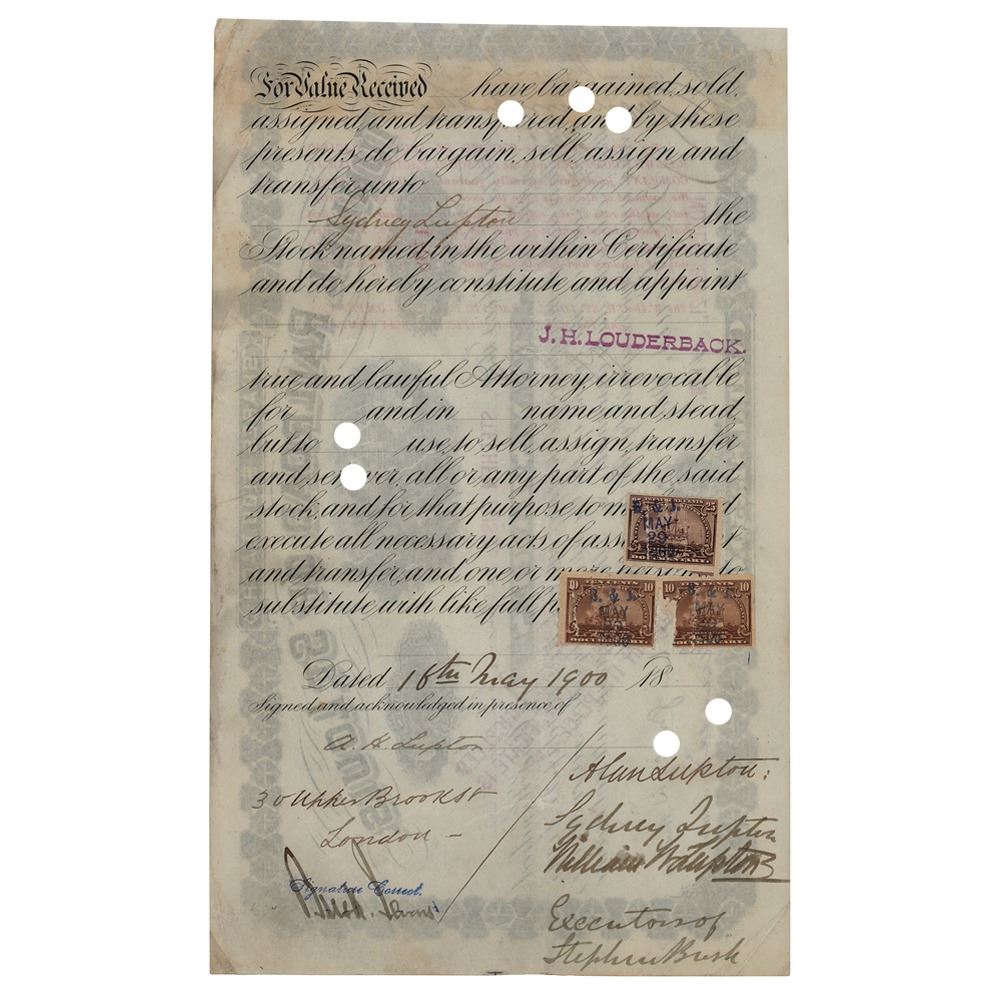 For Value Received have bargained, sold,
assigned, and transferred, and by these
presents, do bargain, sell, assign and
transfer, unto
Sydney Lupton the
Stock named in the within Certificate
and do hereby constitute and appoint
J. H. LOUDERBACK.
true and lawful Attorney, irrevocable
for and in name and stead,
but to use, to sell, assign, transfer
and set over, all or any part of the said
stock, and for that purpose to m d
execute all necessary acts of ass t
and transfer, and one or more persons to
substitute with like full p
25
MAY
29
1900
DOCUMENTARY
10 TEN CENTS 10
MAY
1900
DOCUMENTARY
10 TEN CENTS 10
MAY
1900
DOCUMENTARY
Dated 16th May 1900 18
Signed and acknowledged in presence of
A. H. Lupton
30 Upper Brook St
London –
Alan Lupton:
Sydney Lupton
William W Lupton
Signature Correct.
Executors of
Stephen Bush